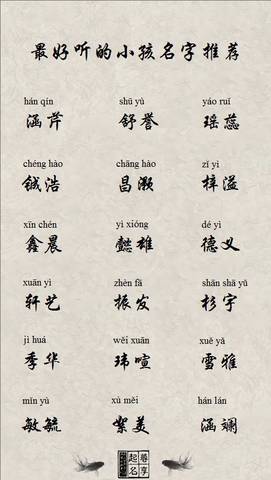 最好听的小孩名字推荐
hán qín shū yù yáo ruǐ
涵芹 舒誉 瑶蕊
chéng hào chāng hào zǐ yì
铖浩 昌灏 梓溢
xīn chén yì xióng dé yì
鑫晨 懿雄 德义
xuān yì zhèn fā shān shā yǔ
轩艺 振发 杉宇
jì huá wěi xuān xuě yǎ
季华 玮喧 雪雅
mǐn yù xù měi hán lán
敏毓 絮美 涵斓
起名 尊享